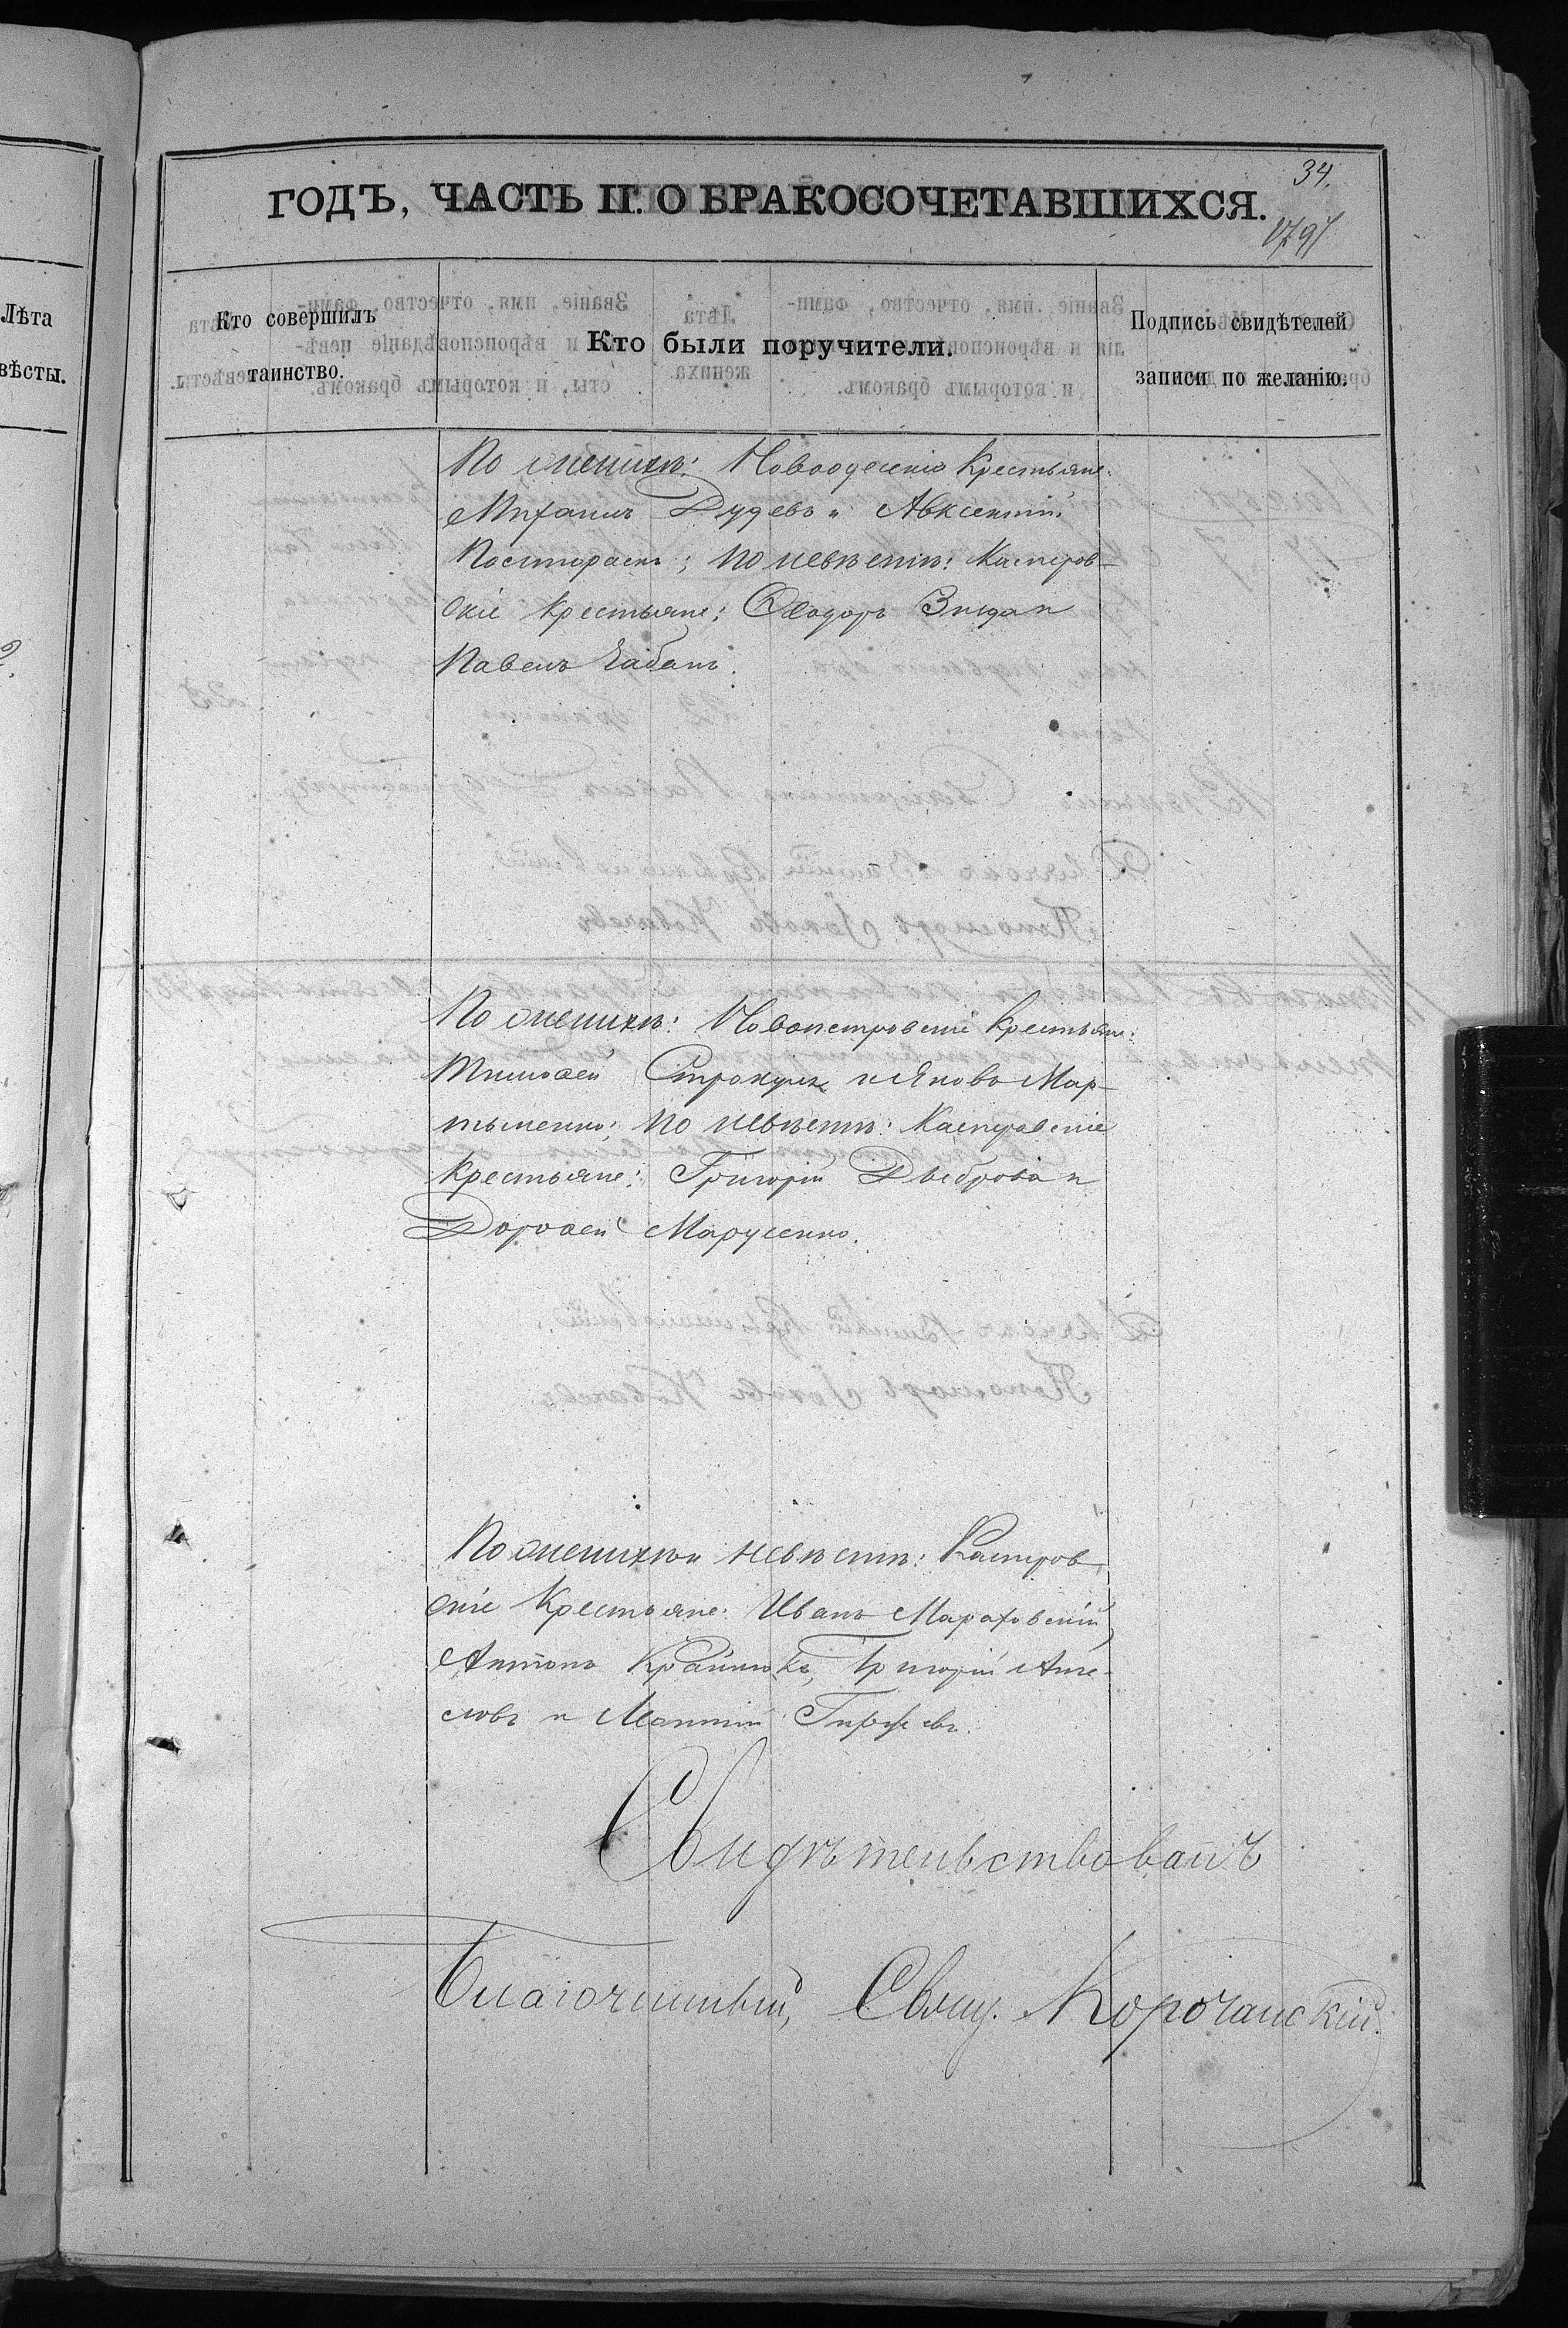 34.
ГОДЪ, ЧАСТЬ II. О БРАКОСОЧЕТАВШИХСЯ.
Лѣта
вѣсты.
Кто совершилъ
таинство.
Кто были поручители.
Подпись свидѣтелей
записи по желанію.
По женихѣ: Новоодесскіе крестьяне:
Михаилъ Дудевъ и Авксентій
по невѣстѣ: Касперов-
скіе крестьяне: Ѳеодоръ и
Павелъ Чабанъ.
По женихѣ: Новопетровскіе крестьяне:
Тимоѳей и Яковъ Мар-
тыненко; по невѣстѣ: Касперовскіе
крестьяне: Григорій Дыброва и
Дороѳей Марусенко.
По женихѣ и невѣстѣ: Касперов-
скіе крестьяне: Иванъ Мараховскій,
Антонъ Крайнюкъ, Григорій Анге-
ловъ и
Свидѣтельствовалъ
Благочинный, Свящ. Корочанскій.